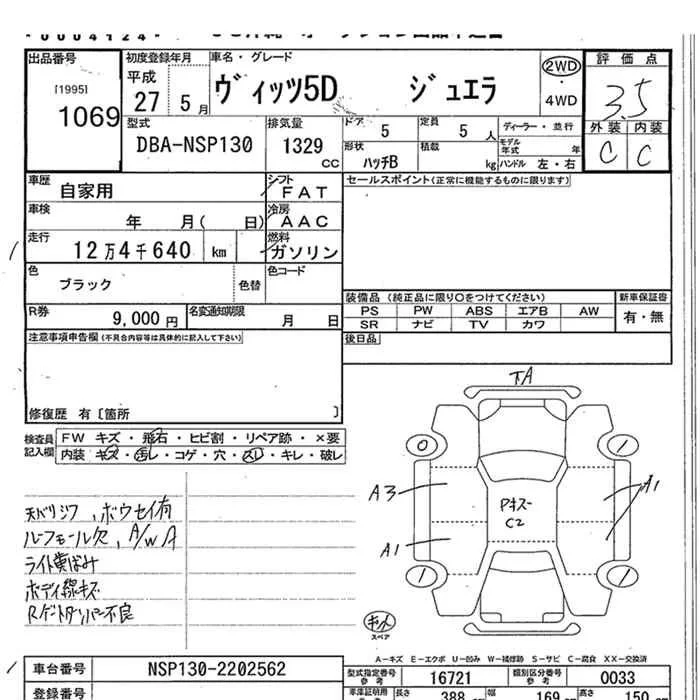 出品番号
[1995]
1069
初度登録年月
平成
27 5 月
車名・グレード
ヴィッツ5D ジュエラ
2WD
4WD
評価点
3.5
外装 内装
C C
型式
DBA-NSP130
排気量
1329
CC
ドア
5
定員
5 人
ディーラー・並行
モデル年式 年
形状
ハッチB
積載
kg
ハンドル 左・右
車歴
自家用
シフト
FAT
セールスポイント(正常に機能するものに限ります)
車検
年 月( 日)
冷房
AAC
走行
12万4千640 km
燃料
ガソリン
色
ブラック
色替
色コード
R券
9,000 円
名変通知期限
月 日
装備品 (純正品に限り○をつけてください)
PS PW ABS エアB AW
SR ナビ TV カワ
新車保証書
有・無
後日品
注意事項申告欄(不具合内容等は具体的に記入して下さい)
修復歴 有〔箇所 〕
検査員記入欄
FW キズ・飛石・ヒビ割・リペア跡・×要
内装 キズ・汚レ・コゲ・穴・スレ・キレ・破レ
天バリシワ、ボウセイ有
ルーフモール欠、A/W A
ライト黄ばみ
ボディ線キズ
Rゲートダンパー不良
下A
0
1
A3
A1
A1
Pキズ
C2
1
1
スペア
A-キズ E-エクボ U-凹み W-補修跡 S-サビ C-腐食 XX-交換済
車台番号
NSP130-2202562
型式指定番号
参考
16721
類別区分番号
参考
0033
登録番号
長さ
388
幅
169 cm
高さ
150 cm